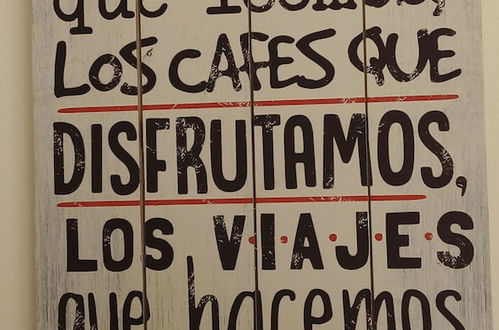 que
LOS CAFES QUE
DISFRUTAMOS,
LOS V·I·A·J·E·S
que hacemos